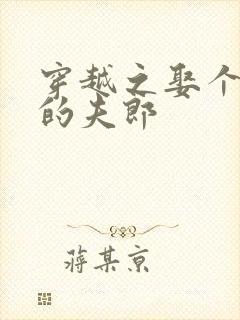 穿越之娶个
的夫郎
蒋某京